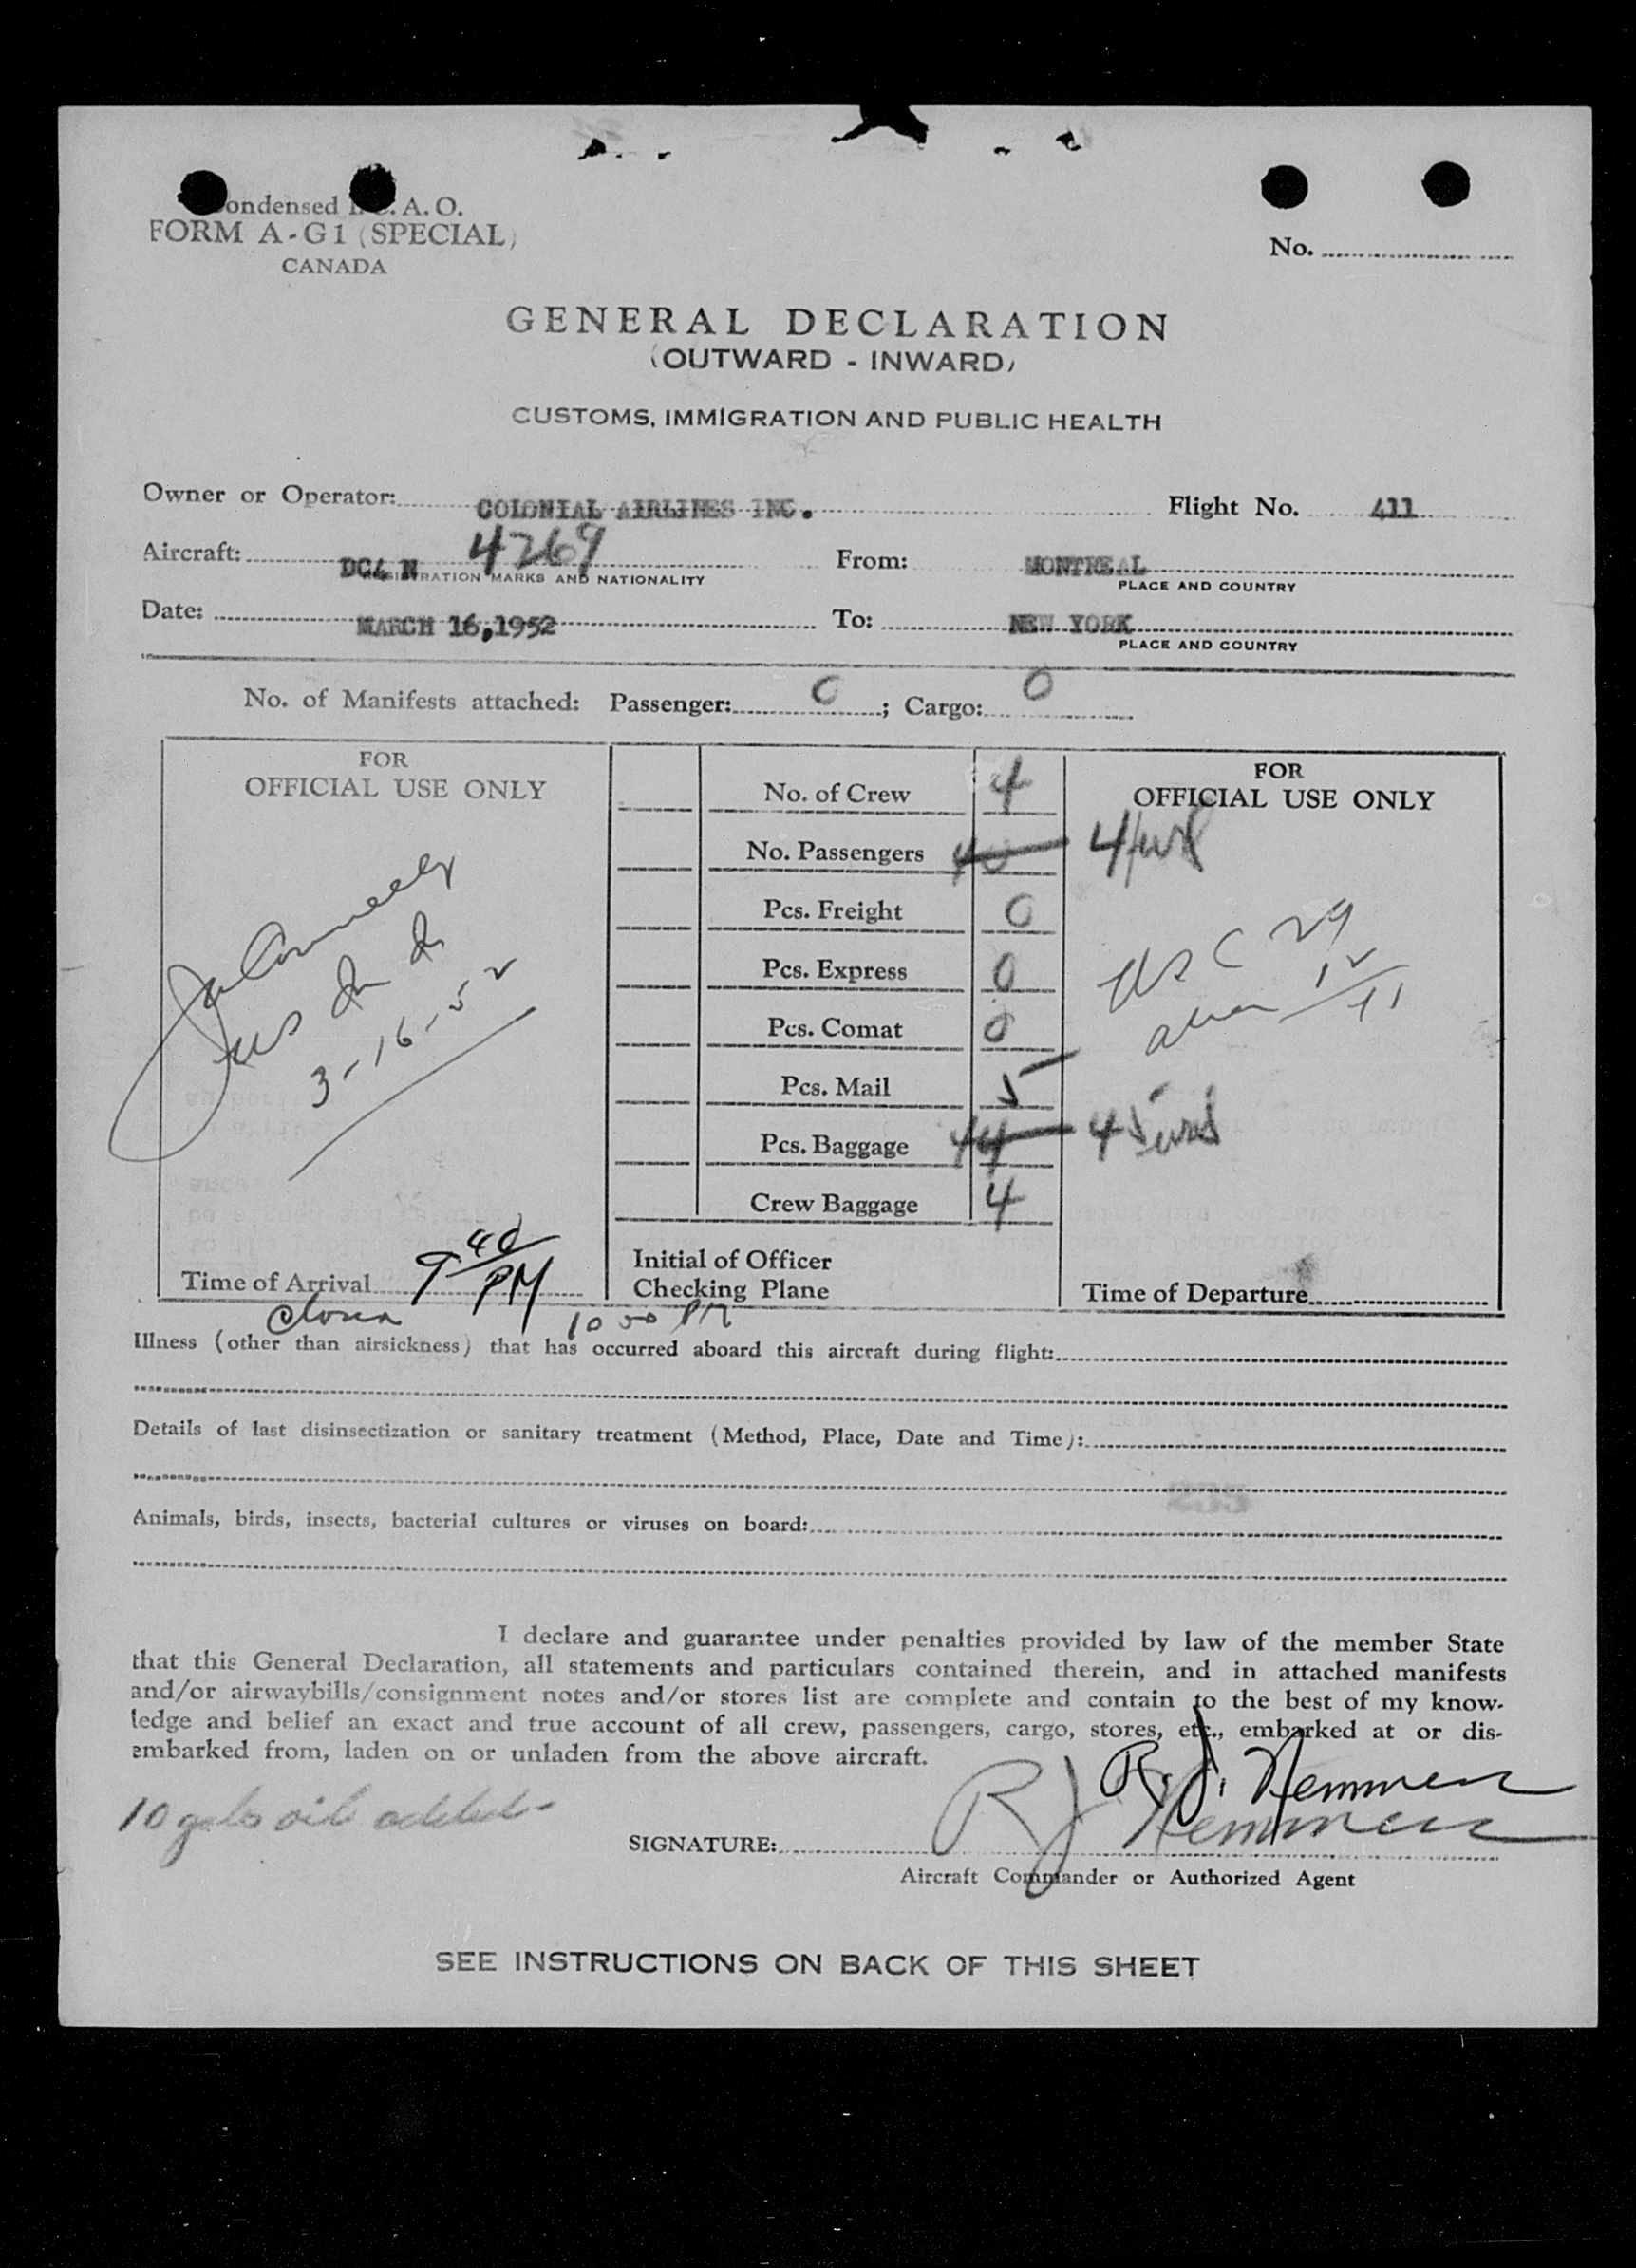 ondensed I.C.A.O.
FORM A-G1 (SPECIAL)
CANADA
No.
GENERAL DECLARATION
(OUTWARD - INWARD)
CUSTOMS, IMMIGRATION AND PUBLIC HEALTH
Owner or Operator: COLONIAL AIRLINES INC. Flight No. 411
Aircraft: DC4 N 4269 From: MONTREAL
MARKS AND NATIONALITY PLACE AND COUNTRY
Date: MARCH 16,1952 To: NEW YORK
PLACE AND COUNTRY
No. of Manifests attached: Passenger: 0 ; Cargo: 0
FOR
OFFICIAL USE ONLY
3-16-52
Time of Arrival 9 40 PM
No. of Crew 4
No. Passengers 40
Pcs. Freight 0
Pcs. Express 0
Pcs. Comat 0
Pcs. Mail 5
Pcs. Baggage 44
Crew Baggage 4
Initial of Officer
Checking Plane
FOR
OFFICIAL USE ONLY
USC 29
alien 12
41
Time of Departure
10 50 PM
Illness (other than airsickness) that has occurred aboard this aircraft during flight:
Details of last disinsectization or sanitary treatment (Method, Place, Date and Time):
Animals, birds, insects, bacterial cultures or viruses on board:
I declare and guarantee under penalties provided by law of the member State
that this General Declaration, all statements and particulars contained therein, and in attached manifests
and/or airwaybills/consignment notes and/or stores list are complete and contain to the best of my know-
ledge and belief an exact and true account of all crew, passengers, cargo, stores, etc., embarked at or dis-
embarked from, laden on or unladen from the above aircraft.
10 gals oil added
R.J. Hemmen
SIGNATURE: R J Hemmen
Aircraft Commander or Authorized Agent
SEE INSTRUCTIONS ON BACK OF THIS SHEET